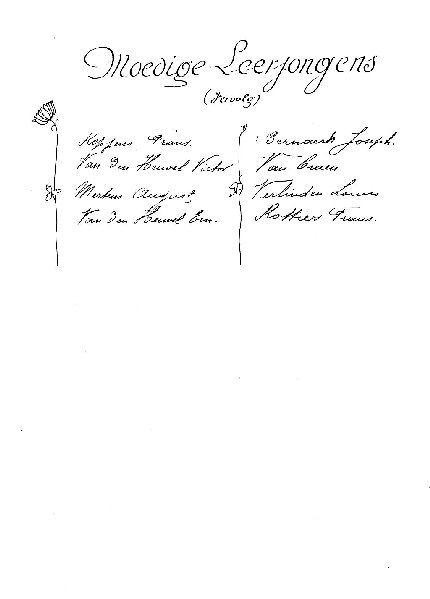 Moedige Leerjongens
(Vervolg)
Heyssens Frans.
Van den Heuvel Victor
Mertens August
Van den Heuvel Em.
Bernaert Joseph.
Van Craen
Verlinden Louis
Rottiers Frans.